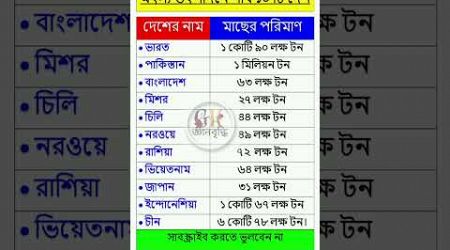 দেশের নাম মাছের পরিমাণ
ভারত ১ কোটি ৯০ লক্ষ টন
পাকিস্তান ১ মিলিয়ন টন
বাংলাদেশ ৬৩ লক্ষ টন
মিশর ২৭ লক্ষ টন
চিলি ৪৪ লক্ষ টন
নরওয়ে ৪৯ লক্ষ টন
রাশিয়া ৭২ লক্ষ টন
ভিয়েতনাম ৬৪ লক্ষ টন
জাপান ৩১ লক্ষ টন
ইন্দোনেশিয়া ১ কোটি ৬৭ লক্ষ টন
চীন ৬ কোটি ৭৮ লক্ষ টন।
সাবস্ক্রাইব করতে ভুলবেন না
GK
জ্ঞানবৃদ্ধি
বাংলাদেশ
মিশর
চিলি
নরওয়ে
রাশিয়া
ভিয়েতনাম
লক্ষ টন
লক্ষ টন
লক্ষ টন
লক্ষ টন
লক্ষ টন
লক্ষ টন